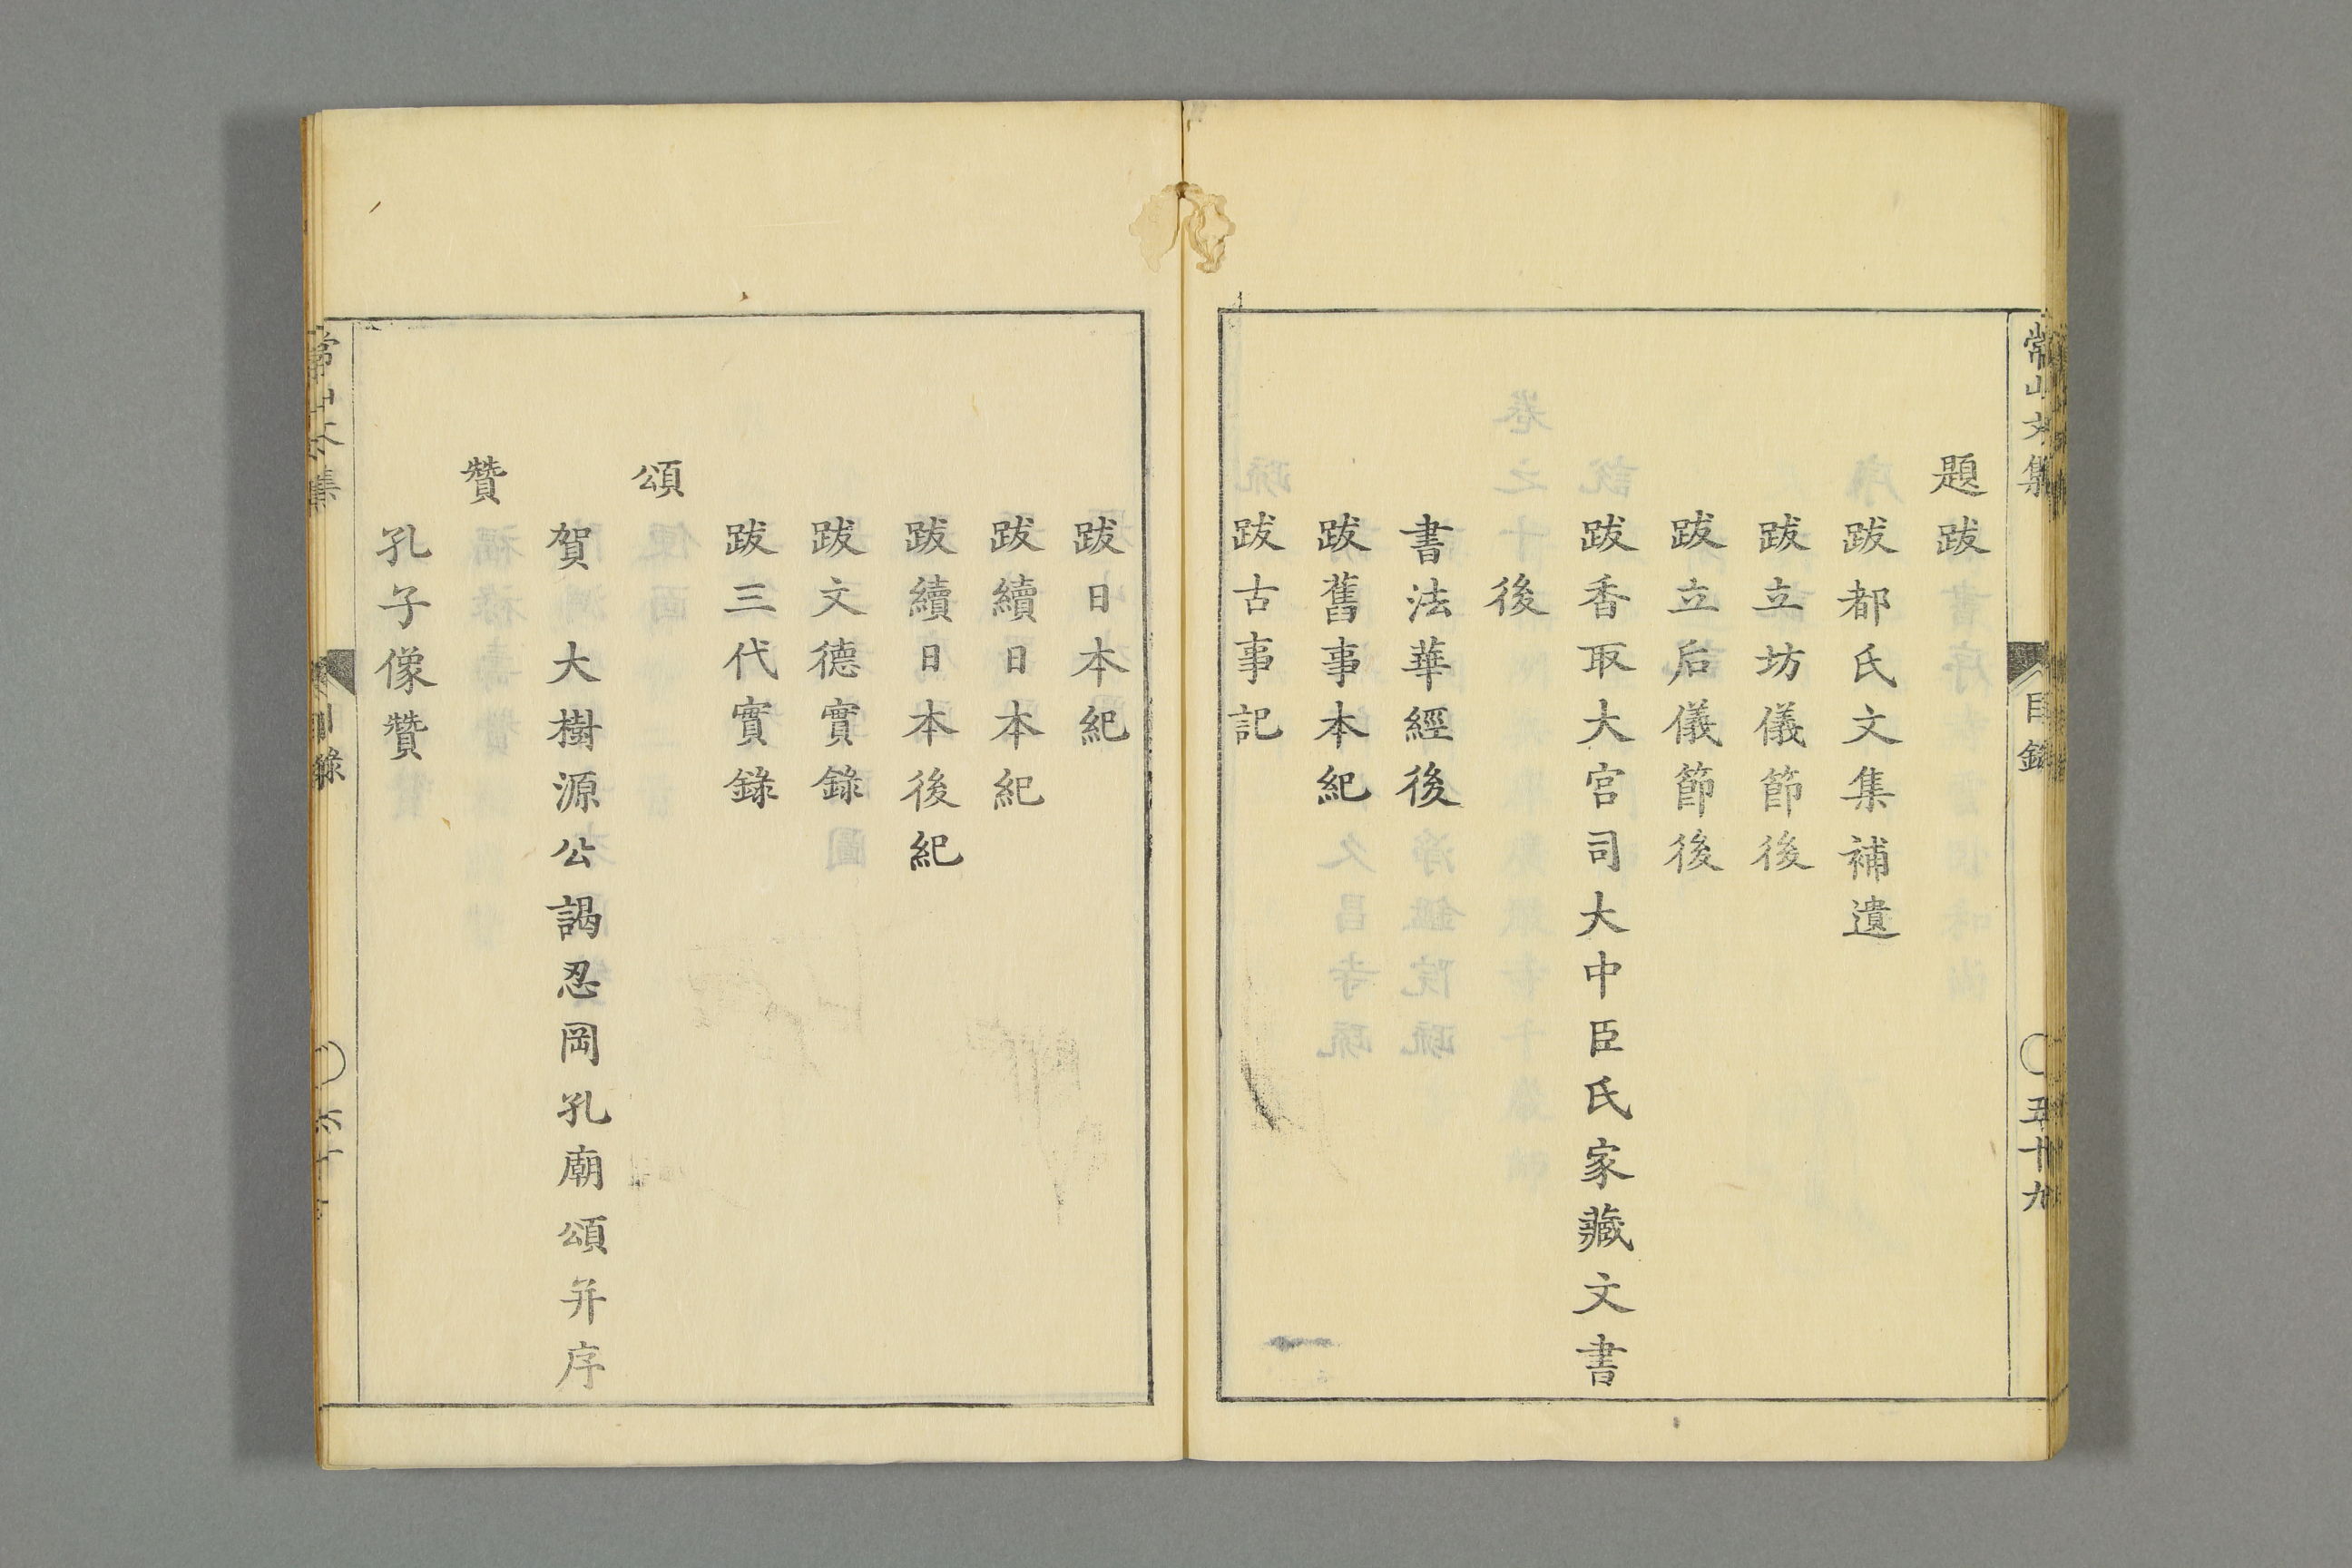 常山文集
目録
五十九
題跋
跋都氏文集補遺
跋立坊儀節後
跋立后儀節後
跋香取大宮司大中臣氏家藏文書
後
書法華經後
跋舊事本紀
跋古事記
跋日本紀
跋續日本紀
跋續日本後紀
跋文德實錄
跋三代實錄
頌
賀大樹源公謁忍岡孔廟頌并序
贊
孔子像贊